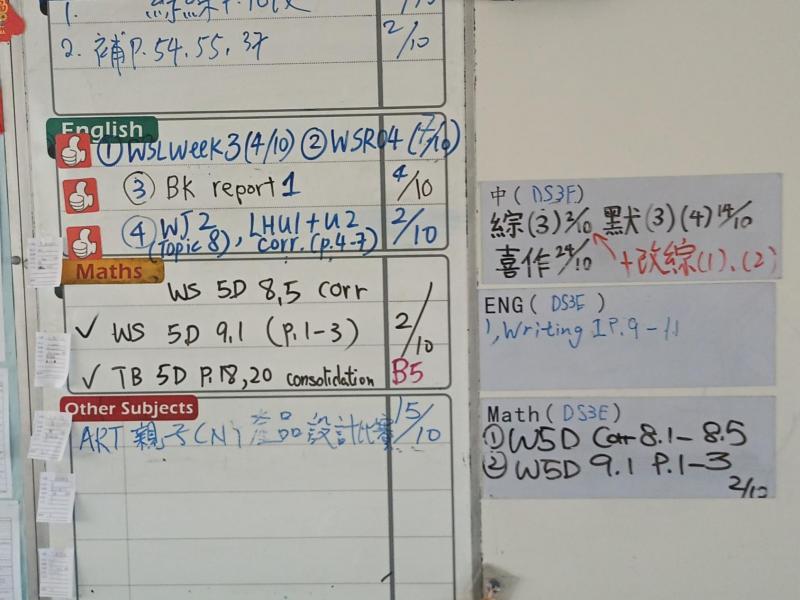 1.
2. 補P.54.55.37 2/10
English
①WSLWeek3(4/10) ②WSR04(7/10)
③ BK report 1 4/10
④ WJ2 (Topic 8), LHU1+U2 corr. (p.4-7) 2/10
Maths
WS 5D 8,5 corr
✓ WS 5D 9.1 (P.1-3) 2/10
✓ TB 5D P.18,20 consolidation B5
Other Subjects
ART 親子(N) 產品設計比賽 15/10
中(DS3F)
綜(3)2/10 默(3)(4)14/10
喜作24/10 +改綜(1).(2)
ENG(DS3E)
1,Writing 1P.9-11
Math(DS3E)
①W5D Corr 8.1-8.5
②W5D 9.1 P.1-3
2/10